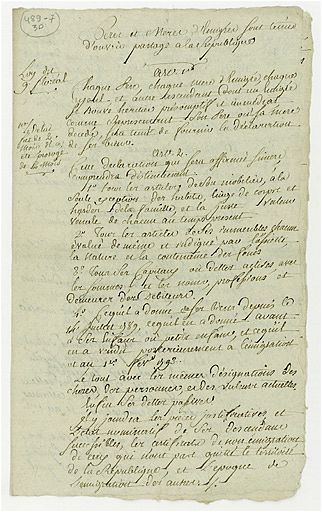 489-7
30
Pere et Meres d'émigrés sont tenus
d'ouvrir partage a la République
Loy du
9 floréal
art. 1er
Chaque Pere, chaque mere d'émigré, chaque
ayeul et autre descendant dont un émigré
se trouve héritier présomptif et
comme représentant son Pere ou sa mere
décédé, sera tenu de fournir la déclaration
de ses biens.
Le délai
est de 2
mois
prorogé
art. 2
Cette déclaration qui sera affirmée sincere
comprendra distinctement
1° tous les articles de son mobilier, à la
seule exception des habits, linges de corps et
hardes de la famille et la juste valeur
vénale de chacun au tems présent
2° Tous les articles de ses immeubles chacun
évalué de même et indiqué par
la nature et la contenance des fonds
3° Tous ses Capitaux ou dettes actives avec
les sommes et les noms, professions et
demeures des débiteurs.
4° Ce qu'il a donné depuis le
14 juillet 1789, ce qu'il en a donné avant
a des enfans ou petits enfans, et ce qu'il
en a vendu postérieurement à l'émigration
et au 1er fev. 1793
le tout avec les mêmes désignations des
choses, des personnes, et des valeurs actuelles
Enfin ses dettes passives
il y joindra les pieces justificatives et
l'état nominatif de ses descendans
successibles, les certificats de non émigration
de ceux qui n'ont pas quitté le territoire
de la République, et l'époque de
l'émigration des autres